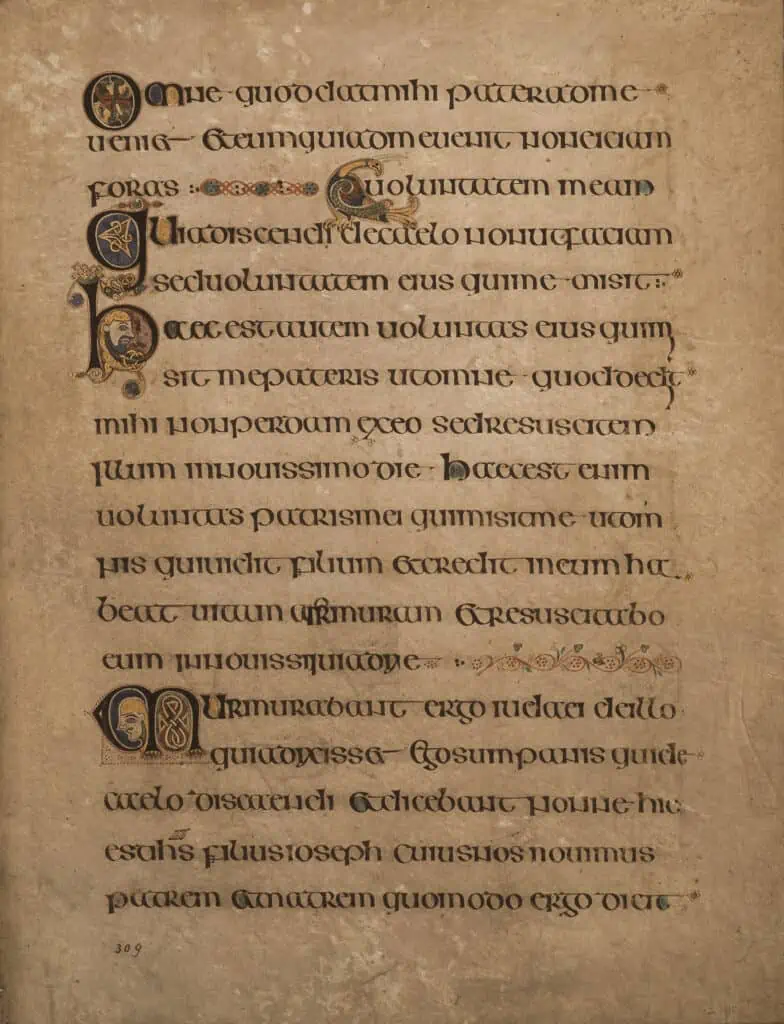 Omne quod dat mihi pater ad me
ueniet et eum qui ad me uenit non eiciam
foras : uoluntatem meam
Quia discendi de caelo non ut faciam
sed uoluntatem eius qui me misit :
haec est autem uoluntas eius qui mi
sit me pateris ut omne quod dedit
mihi non perdam ex eo sed resuscitem
illum in nouissimo die · haec est enim
uoluntas patris mei qui misit me ut om
nis qui uidit filium et credit in eum ha
beat uitam et resuscitabo
eum
Murmurabant ergo iudaei de illo
quia dixisset ego sum panis qui de
caelo discendi et dicebant nonne hic
est ihs filius ioseph cuius nos nouimus
patrem et matrem quomodo ergo dicit
309